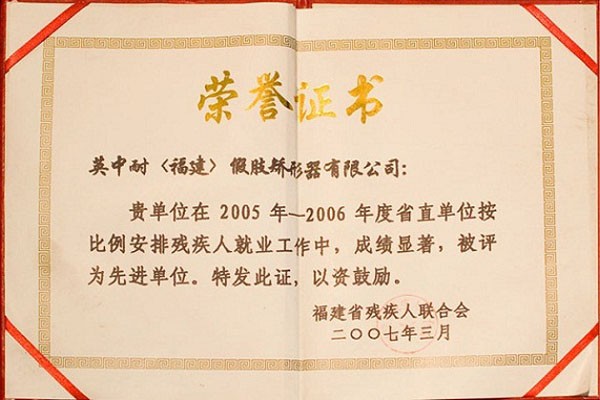 荣誉证书
英中耐〈福建〉假肢矫形器有限公司：
贵单位在 2005 年—2006 年度省直单位按
比例安排残疾人就业工作中，成绩显著，被评
为先进单位。特发此证，以资鼓励。
福建省残疾人联合会
二〇〇七年三月